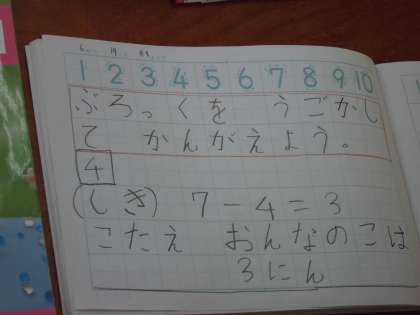 1 2 3 4 5 6 7 8 9 10
ぶろっくを うごかし
て かんがえよう。
4
(しき) 7-4=3
こたえ おんなのこは
3にん